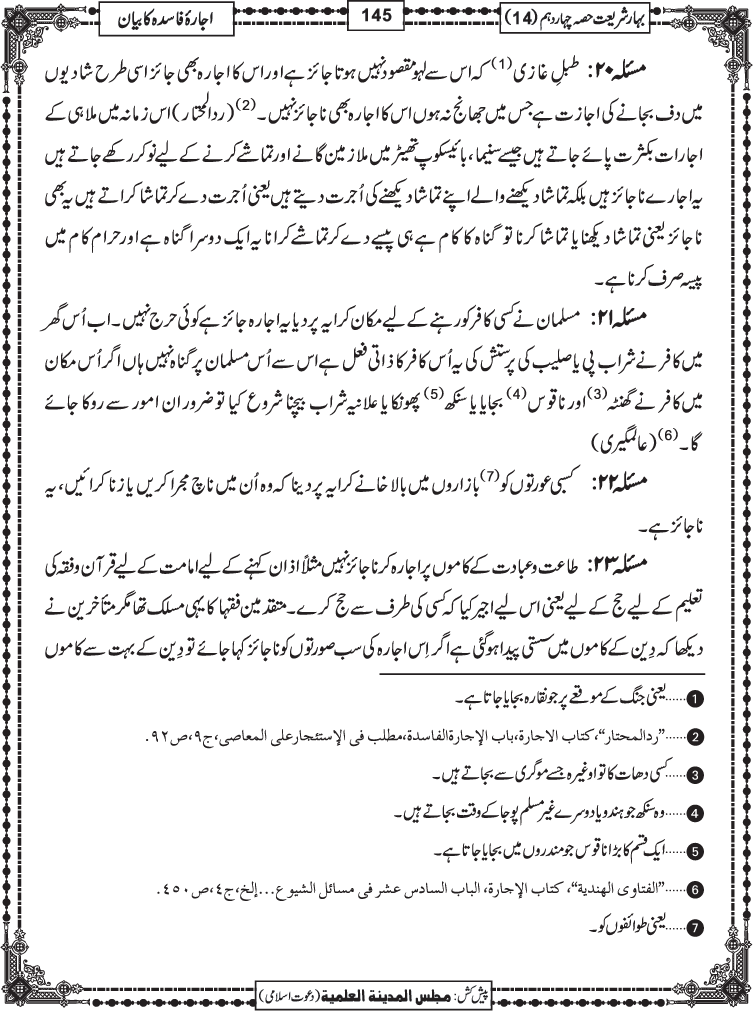 بہار شریعت حصہ چہاردہم (14)
145
اجارۂ فاسدہ کا بیان
مسئلہ ۲۰: طبلِ غازی(1) کہ اس سے لہو مقصود نہیں ہوتا جائز ہے اور اس کا اجارہ بھی جائز اسی طرح شادیوں
میں دف بجانے کی اجازت ہے جس میں جھانج نہ ہوں اس کا اجارہ بھی ناجائز نہیں۔(2) (ردالمحتار) اس زمانہ میں ملاہی کے
اجارات بکثرت پائے جاتے ہیں جیسے سنیما، بائیسکوپ تھیٹر میں ملازمین گانے اور تماشے کرنے کے لیے نوکر رکھے جاتے ہیں
یہ اجارے ناجائز ہیں بلکہ تماشا دیکھنے والے اپنے تماشا دیکھنے کی اُجرت دیتے ہیں یعنی اُجرت دے کر تماشا کراتے ہیں یہ بھی
ناجائز یعنی تماشا دیکھنا یا تماشا کرنا تو گناہ کا کام ہے ہی پیسے دے کر تماشے کرانا یہ ایک دوسرا گناہ ہے اور حرام کام میں
پیسہ صرف کرنا ہے۔
مسئلہ ۲۱: مسلمان نے کسی کافر کو رہنے کے لیے مکان کرایہ پر دیا یہ اجارہ جائز ہے کوئی حرج نہیں۔ اب اُس گھر
میں کافر نے شراب پی یا صلیب کی پرستش کی یہ اُس کافر کا ذاتی فعل ہے اس سے اُس مسلمان پر گناہ نہیں ہاں اگر اُس مکان
میں کافر نے گھنٹہ(3) اور ناقوس(4) بجایا یا سنکھ(5) پھونکا یا علانیہ شراب بیچنا شروع کیا تو ضرور ان امور سے روکا جائے
گا۔(6) (عالمگیری)
مسئلہ ۲۲: کسبی عورتوں کو(7) بازاروں میں بالاخانے کرایہ پر دینا کہ وہ اُن میں ناچ مجرا کریں یا زنا کرائیں، یہ
ناجائز ہے۔
مسئلہ ۲۳: طاعت و عبادت کے کاموں پر اجارہ کرنا جائز نہیں مثلاً اذان کہنے کے لیے امامت کے لیے قرآن و فقہ کی
تعلیم کے لیے حج کے لیے یعنی اس لیے اجیر کیا کہ کسی کی طرف سے حج کرے۔ متقدمین فقہا کا یہی مسلک تھا مگر متأخرین نے
دیکھا کہ دِین کے کاموں میں سستی پیدا ہوگئی ہے اگر اِس اجارہ کی سب صورتوں کو ناجائز کہا جائے تو دِین کے بہت سے کاموں
1......یعنی جنگ کے موقعے پر جو نقارہ بجایا جاتا ہے۔
2......"ردالمحتار"، کتاب الاجارة، باب الإجارة الفاسدة، مطلب فی الإستئجار علی المعاصی، ج۹، ص۹۲.
3......کسی دھات کا توا وغیرہ جسے موگری سے بجاتے ہیں۔
4......وہ سنکھ جو ہندو یا دوسرے غیر مسلم پوجا کے وقت بجاتے ہیں۔
5......ایک قسم کا بڑا ناقوس جو مندروں میں بجایا جاتا ہے۔
6......"الفتاوی الهندية"، کتاب الإجارة، الباب السادس عشر فی مسائل الشیوع...إلخ، ج٤، ص٤٥٠.
7......یعنی طوائفوں کو۔
پیش کش: مجلس المدینة العلمیة (دعوت اسلامی)